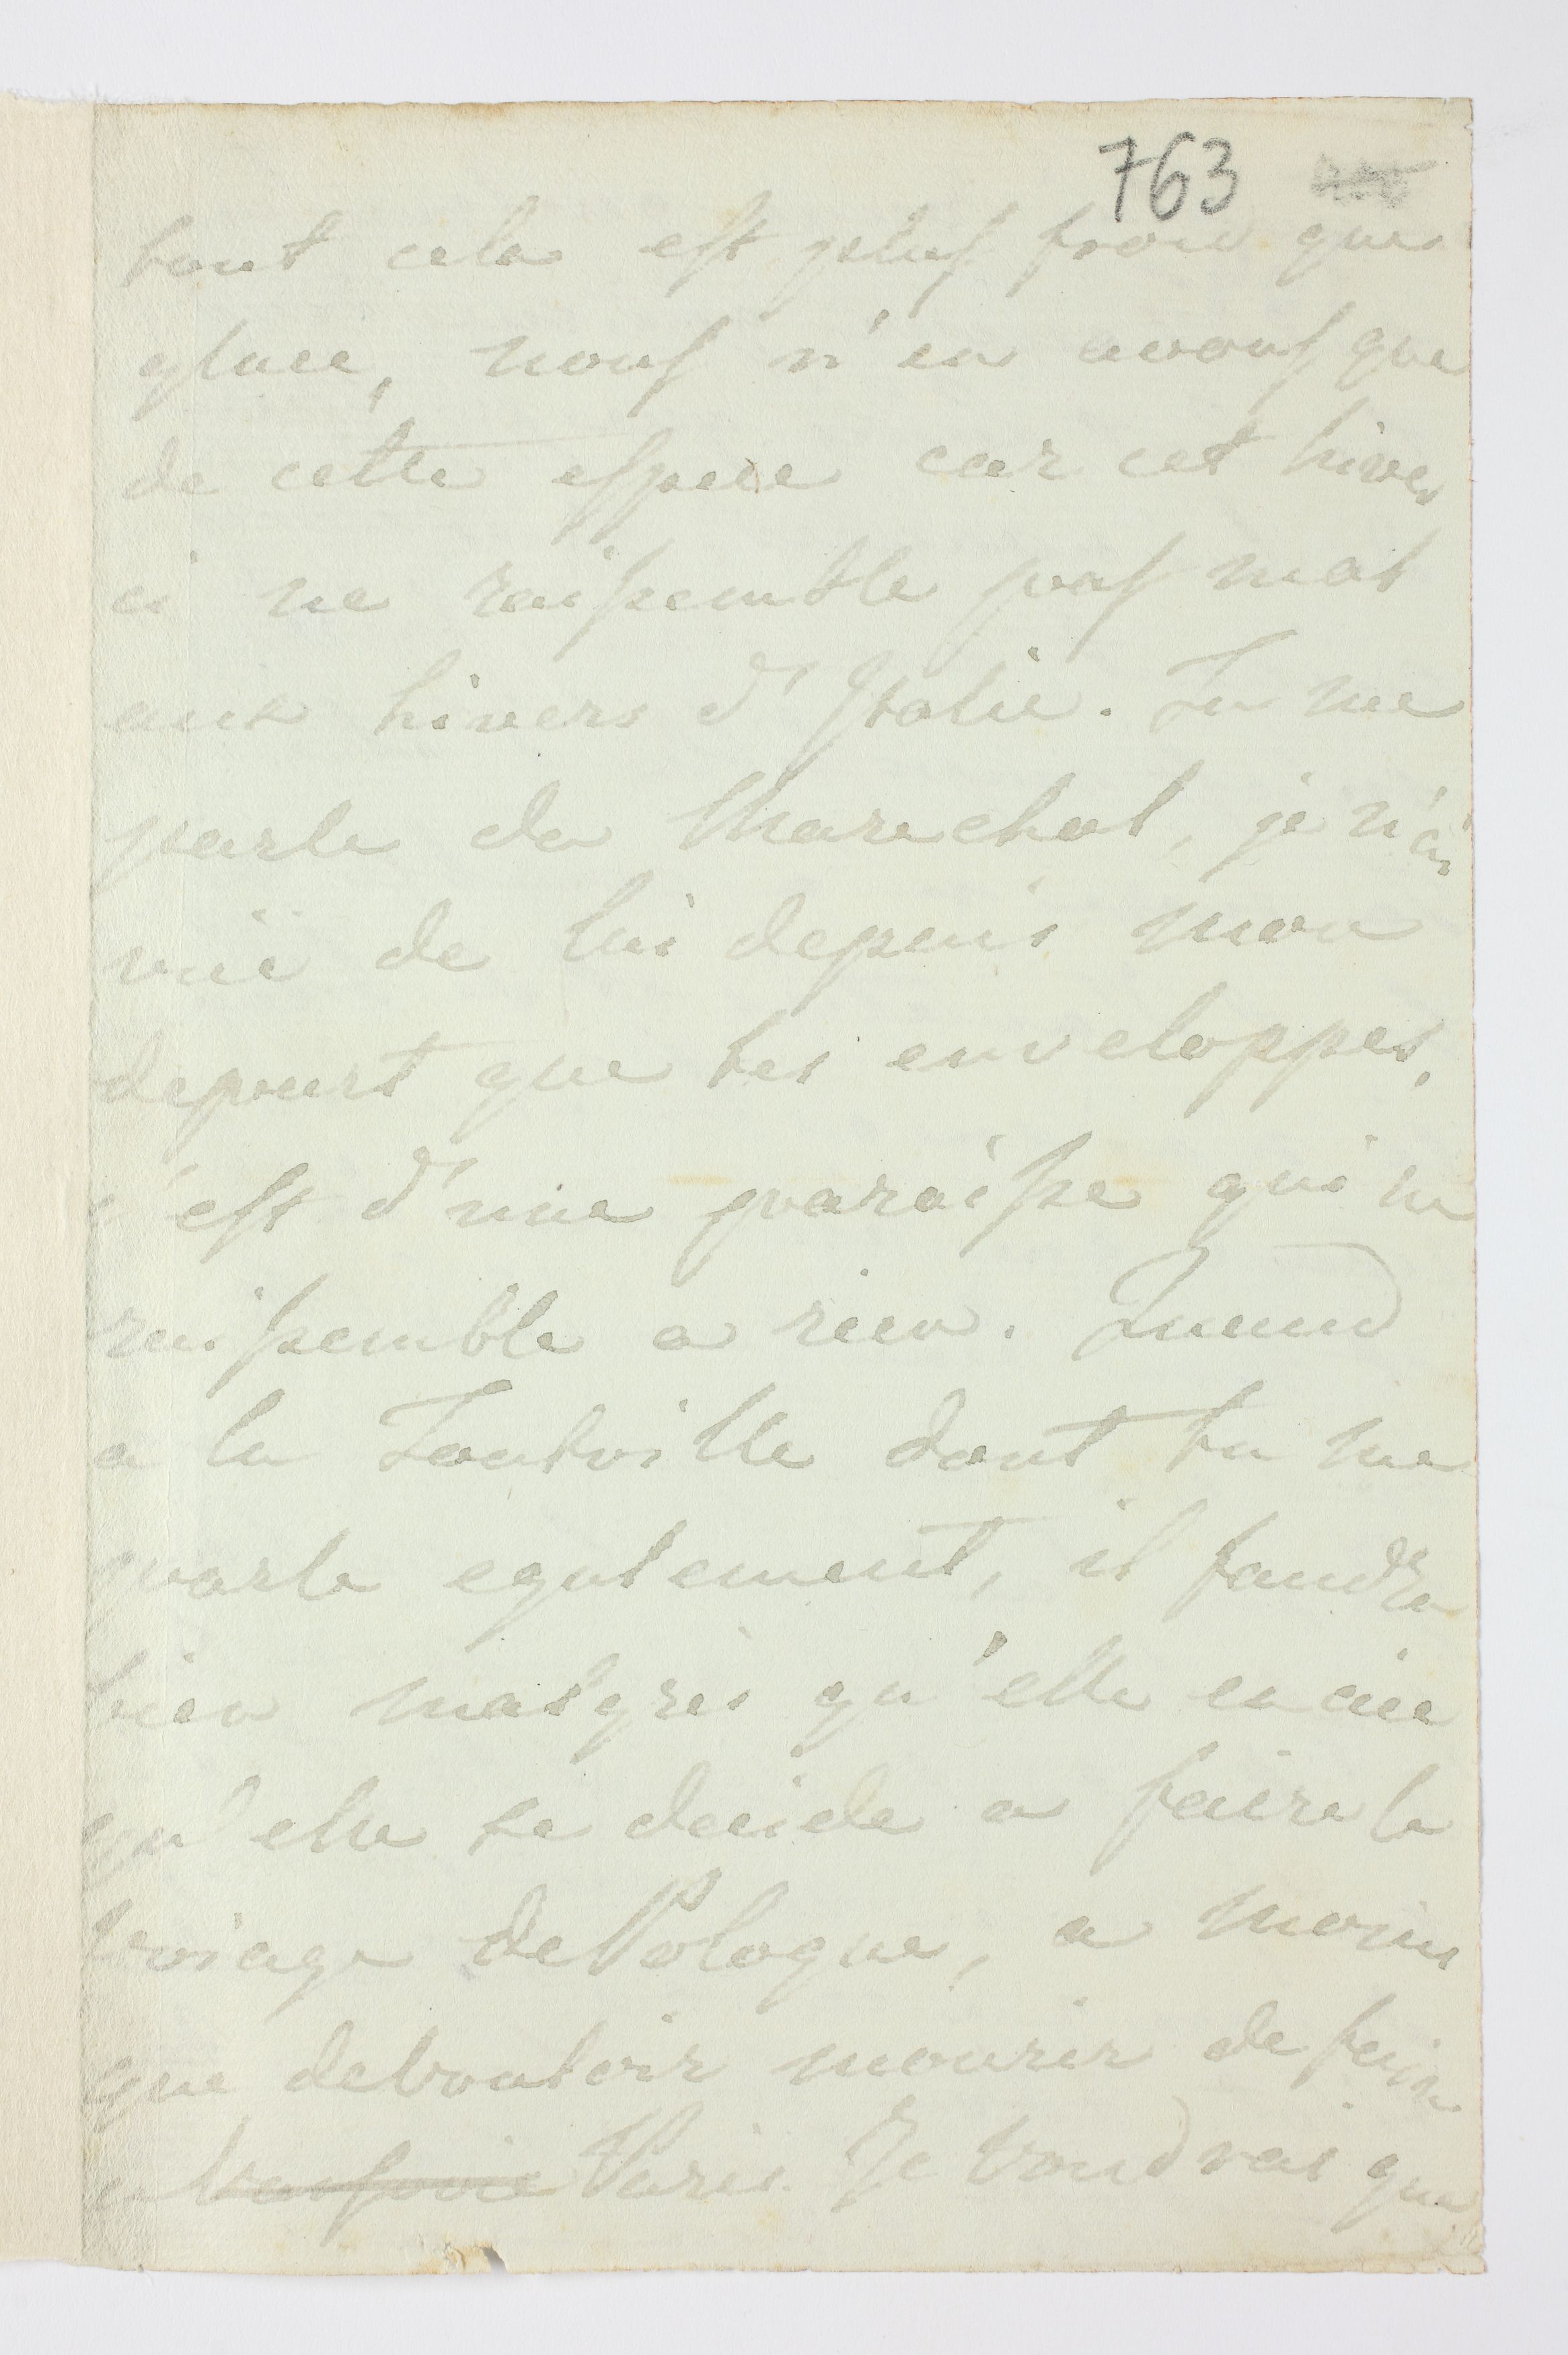 763
tout cela est plus froid que
glace, nous n'en avons que
de cette espece car cet hiver
ci ne raissemble pas mal
aux hivers d'Italie. Tu me
parle du Marechal, je n'ai
vuë de lui depuis mon
depart que tes enveloppes,
c'est d'une paraisse qui ne
raissemble a rien. Quand
a la Toutville dont tu me
parle egalement, il faudra
bien malgres qu'elle en aie
qu'elle se decide a faire le
voiage de Pologne, a moins
que de vouloir mourir de faim
a Varsovie Paris. Je voudrai que